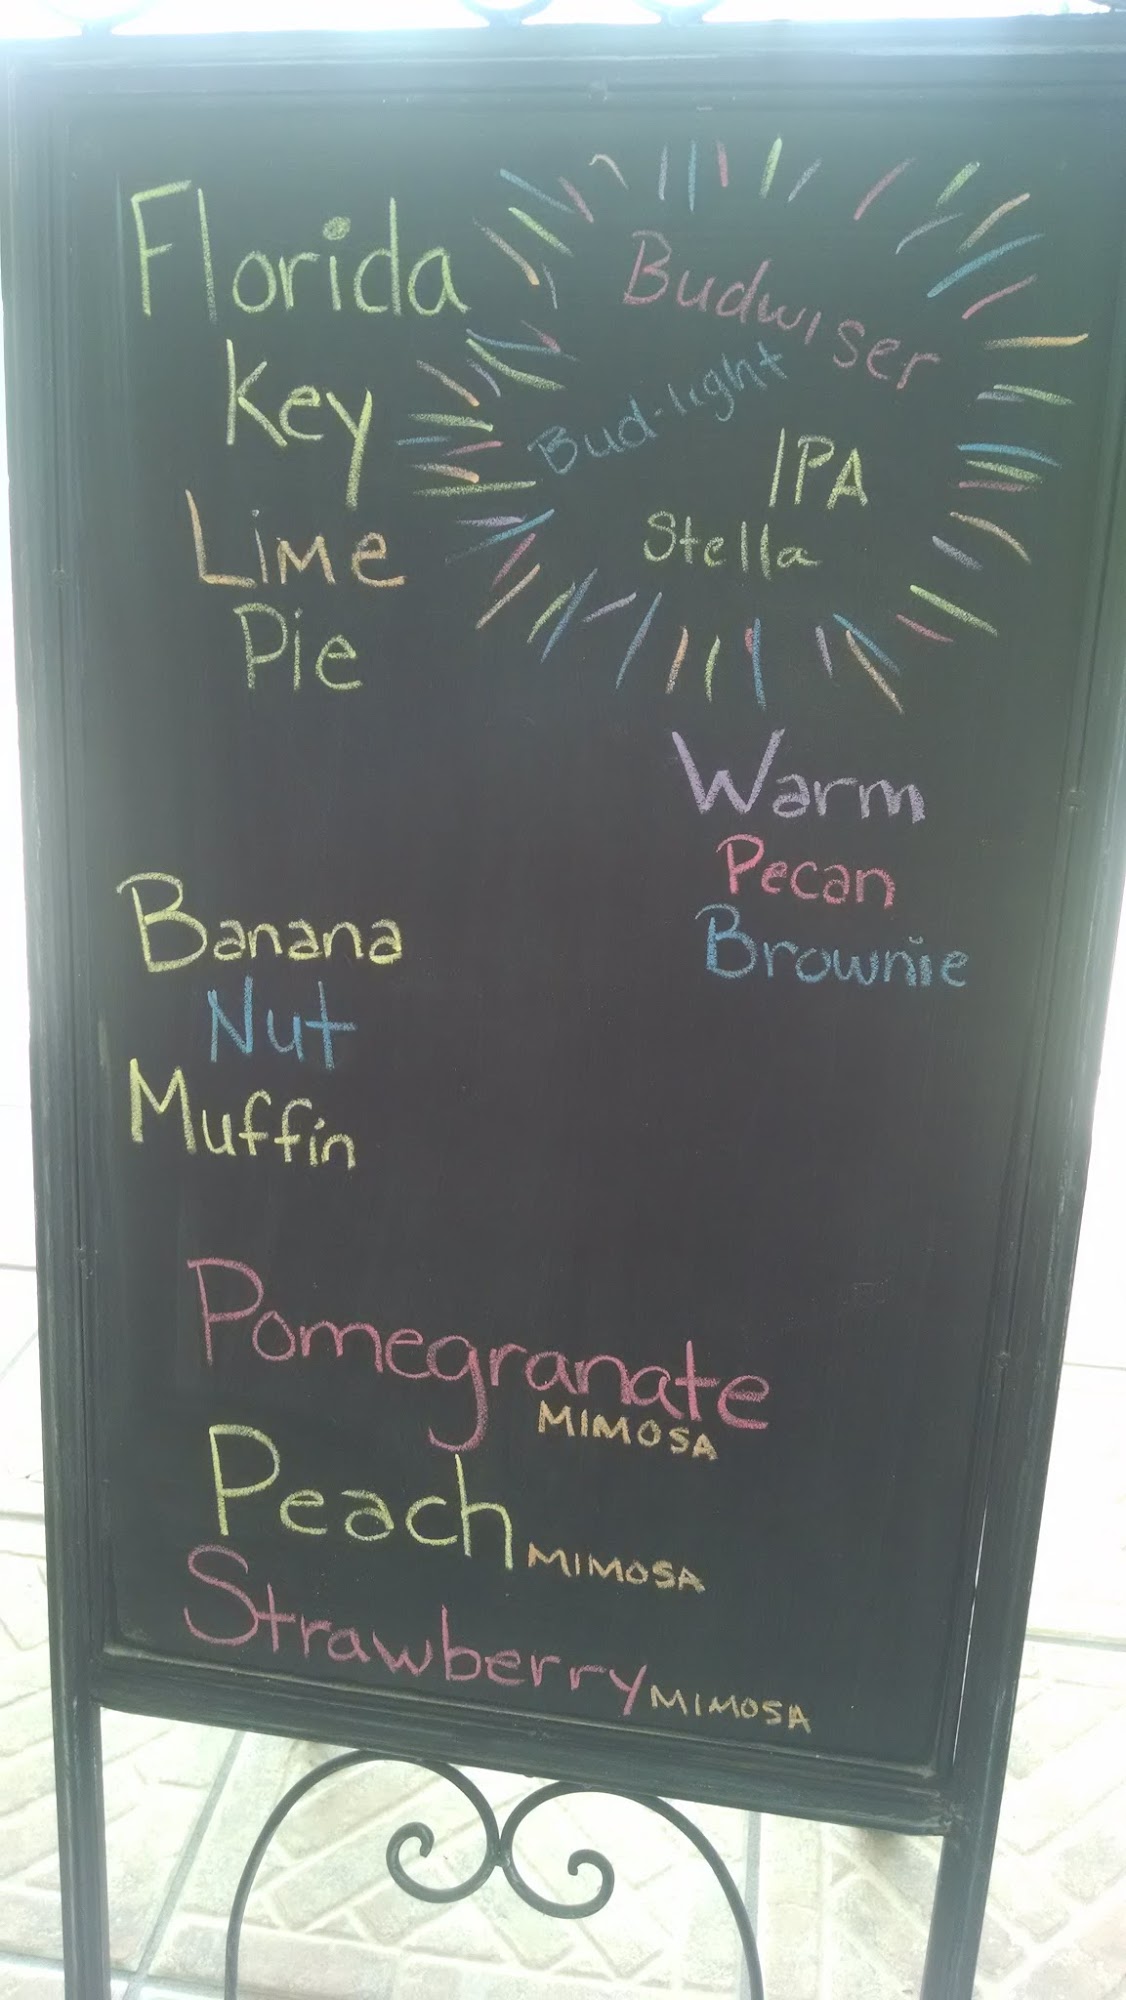 Florida
Key
Lime
Pie
Budwiser
Bud-light
IPA
Stella
Warm
Pecan
Brownie
Banana
Nut
Muffin
Pomegranate
MIMOSA
Peach MIMOSA
Strawberry MIMOSA